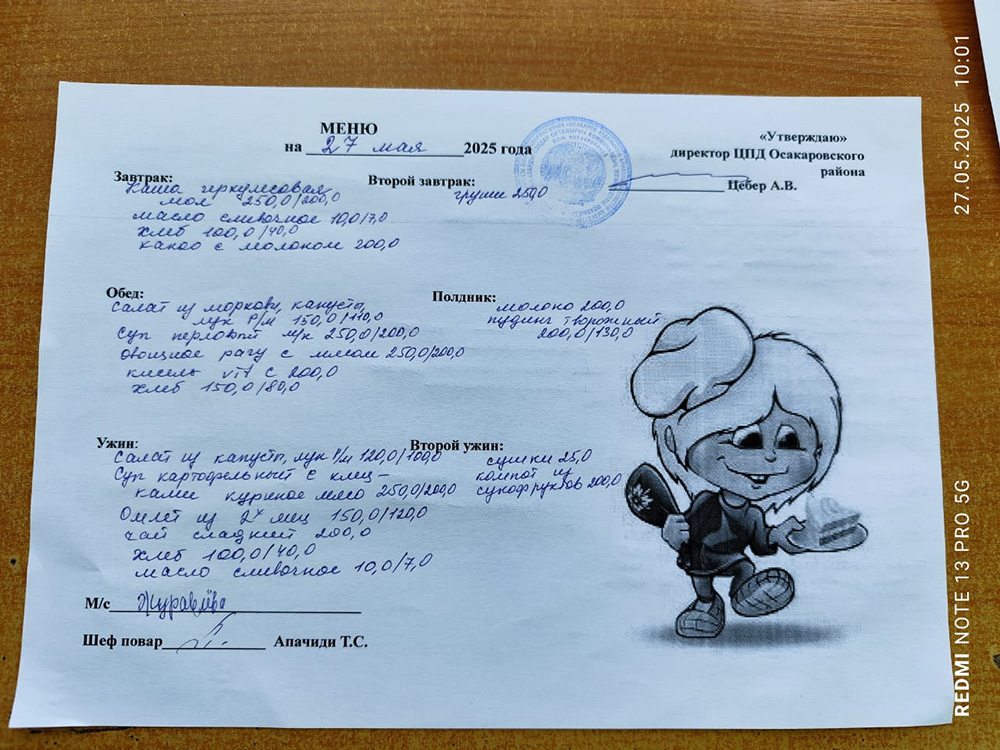 МЕНЮ
на 27 мая 2025 года
«Утверждаю»
директор ЦПД Осакаровского
района
Цебер А.В.
Завтрак:
Каша геркулесовая
мол 250,0/200,0
масло сливочное 10,0/7,0
хлеб 100,0/40,0
какао с молоком 200,0
Второй завтрак:
груши 250,0
Обед:
Салат из моркови, капусты,
лук р/м 150,0/110,0
Суп перловый м/к 250,0/200,0
овощное рагу с мясом 250,0/200,0
кисель vit C 200,0
хлеб 150,0/80,0
Полдник:
молоко 200,0
пудинг творожный
200,0/130,0
Ужин:
Салат из капусты, лук р/м 120,0/100,0
Суп картофельный с клец-
ками куриное мясо 250,0/200,0
Омлет из 2х яиц 150,0/120,0
чай сладкий 200,0
хлеб 100,0/40,0
масло сливочное 10,0/7,0
Второй ужин:
сушки 25,0
компот из
сухофруктов 200,0
М/с
Шеф повар Апачиди Т.С.
27.05.2025 10:01
REDMI NOTE 13 PRO 5G